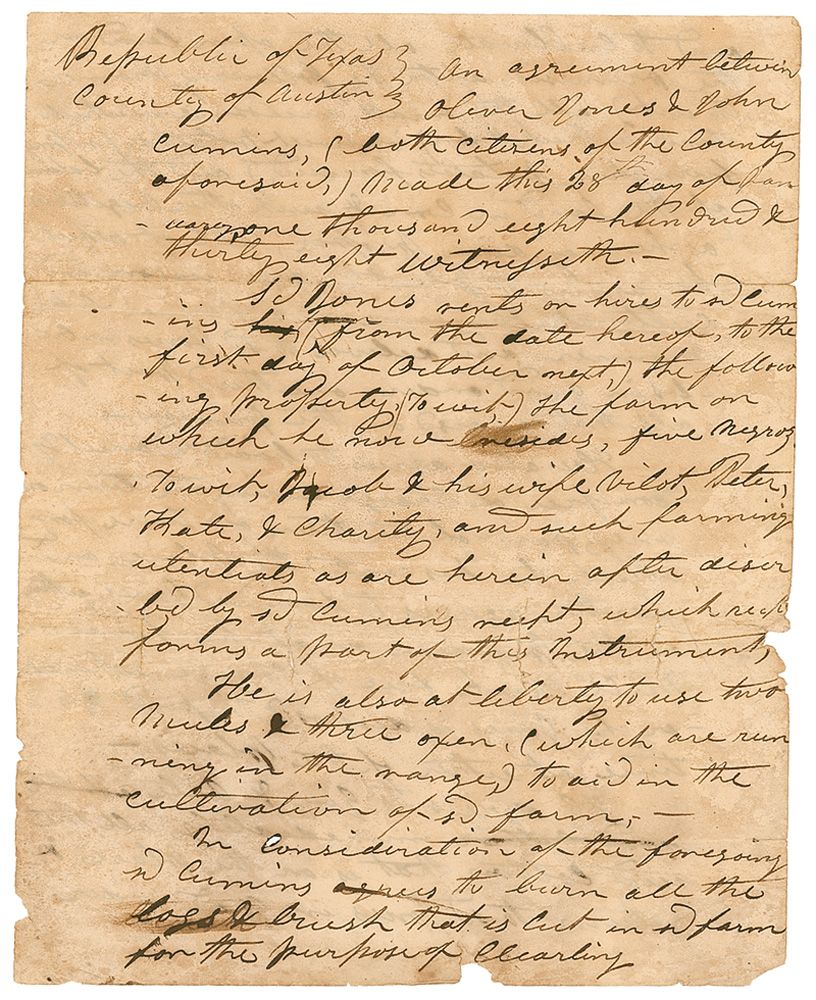 Republic of Texas } An agreement betwen
County of Austin } Oliver Jones & John
Cumins, (both citizens of the County
aforesaid,) made this 28th day of Jan
-uary one thousand eight hundred &
thirty eight Witnesseth. -
Sd Jones rents or hires to sd Cum
-ins (from the date hereof, to the
first day of October next,) the follow
-ing property, (To wit,) the farm on
which he now resides, five negros
To wit, Jacob & his wife Vilot, Peter,
Kate, & Charity, and such farming
utentials as are herein after discr
-bed by sd Cumins recpt, which recpt
forms a part of this Instrument,
He is also at liberty to use two
Mules & three oxen, (which are run
-ning in the range,) to aid in the
cultivation of sd farm, -
In consideration of the foregoing
sd Cumins agrees to burn all the
logs & brush that is cut in sd farm
for the purpose of Clearling